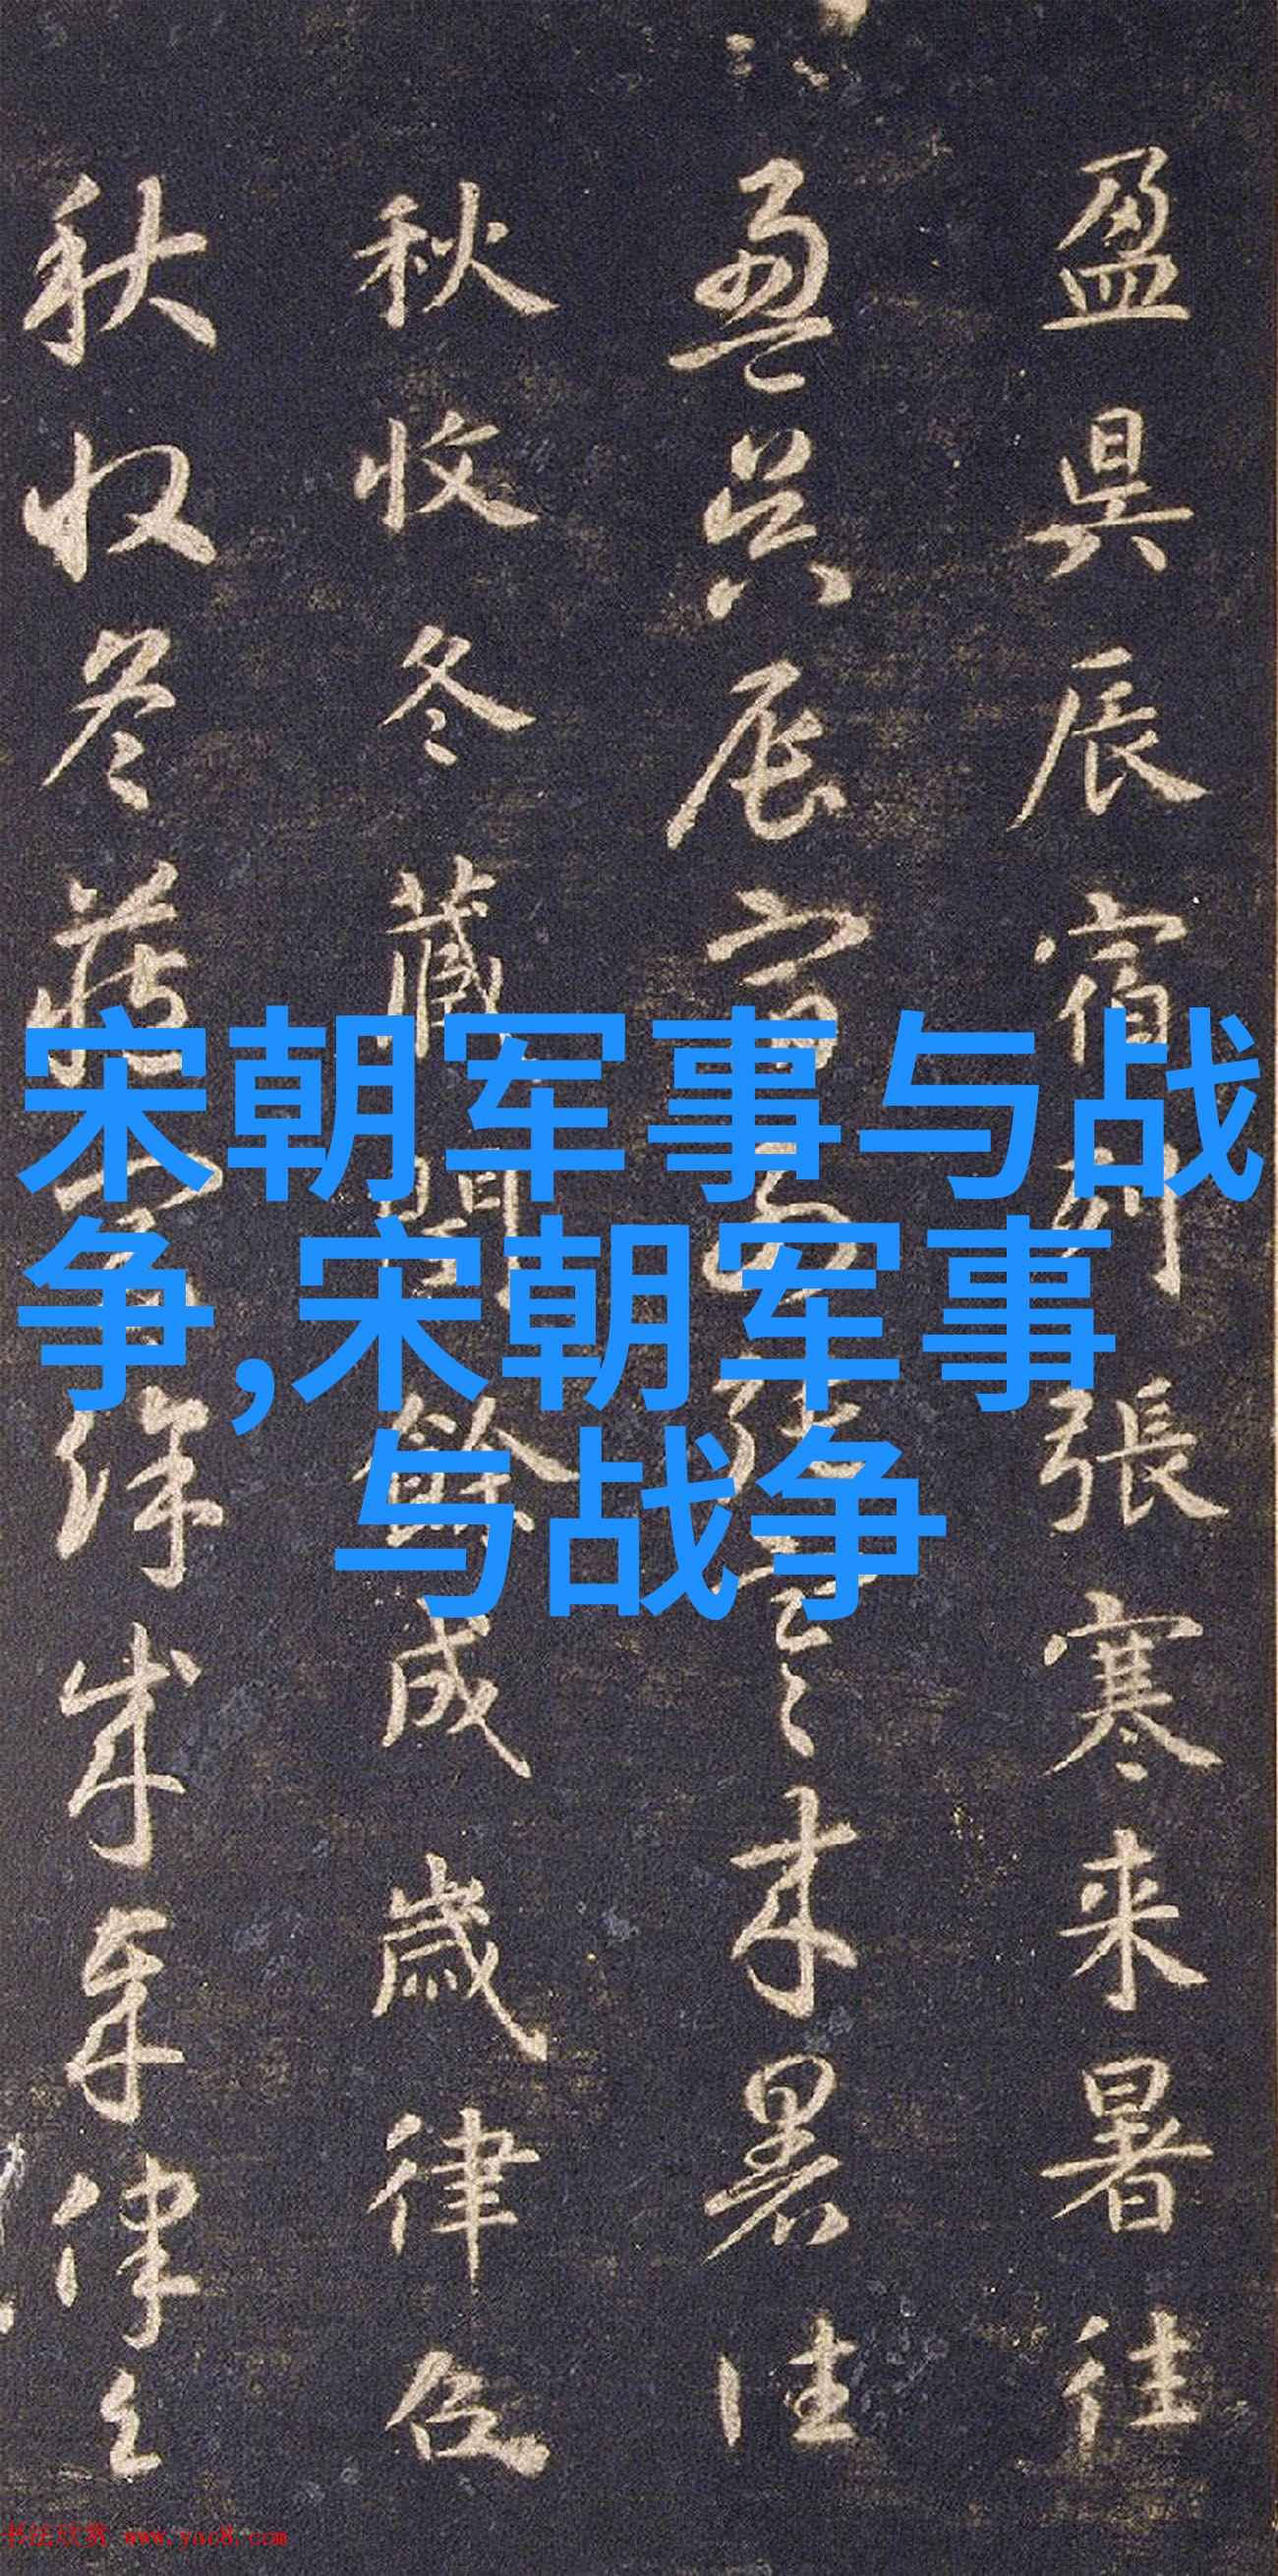 盈昃辰宿列張寒来暑往
盈昃辰宿列張寒来暑往
秋收冬藏閏餘成歲律召
秋收冬藏閏餘成歲律召
宋朝军事与战
争,宋朝军事
与战争
书法欣赏 www.yac8.com